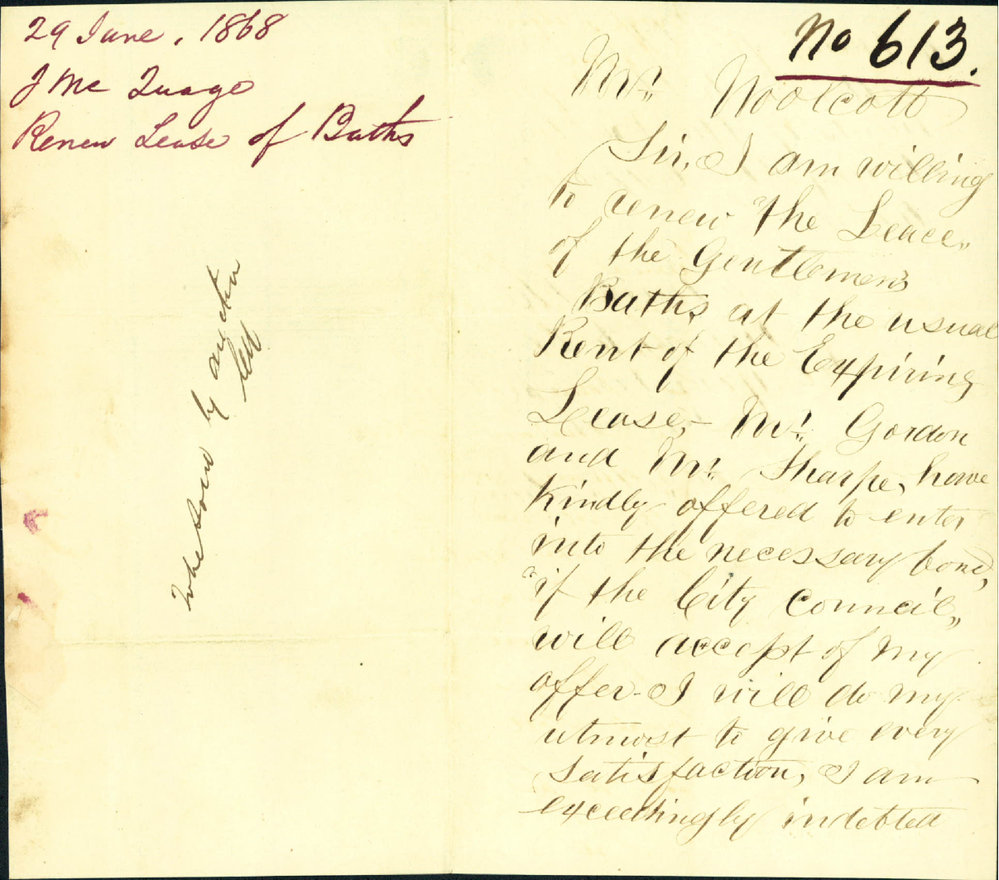 29 June, 1868
J Mc Quago
Renew Lease of Baths
To be sold by auction
No 613.
Mr. Woolcott
Sir, I am willing
to renew the Leace,,
of the Gentlemens
Baths, at the usual
Rent of the Expiring
Lease,- Mr. Gordon
and Mr. Sharpe, have
kindly offered to enter
into the necessary bond,
if the City Council,,
will accept of my
offer. I will do my
utmost to give every
satisfaction, I am
exceedingly indebted